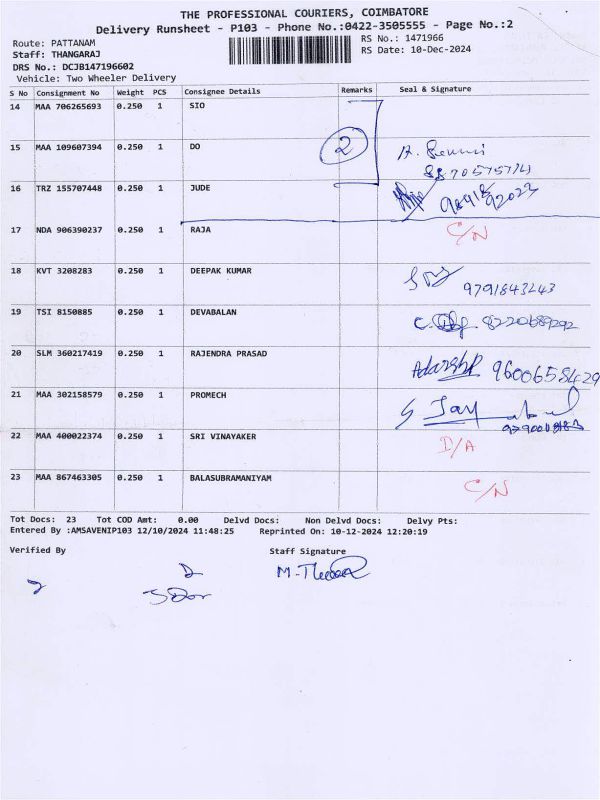 THE PROFESSIONAL COURIERS, COIMBATORE
Delivery Runsheet - P103 - Phone No.:0422-3505555 - Page No.:2
Route: PATTANAM RS No.: 1471966
Staff: THANGARAJ RS Date: 10-Dec-2024
DRS No.: DCJB147196602
Vehicle: Two Wheeler Delivery
S No Consignment No Weight PCS Consignee Details Remarks Seal & Signature
14 MAA 706265693 0.250 1 SIO
15 MAA 109607394 0.250 1 DO 2
16 TRZ 155707448 0.250 1 JUDE
17 NDA 906390237 0.250 1 RAJA C/N
18 KVT 3208283 0.250 1 DEEPAK KUMAR 9791843243
19 TSI 8150885 0.250 1 DEVABALAN 8220689292
20 SLM 360217419 0.250 1 RAJENDRA PRASAD 9600658429
21 MAA 302158579 0.250 1 PROMECH
22 MAA 400022374 0.250 1 SRI VINAYAKER D/A
23 MAA 867463305 0.250 1 BALASUBRAMANIYAM C/N
Tot Docs: 23 Tot COD Amt: 0.00 Delvd Docs: Non Delvd Docs: Delvy Pts:
Entered By :AMSAVENIP103 12/10/2024 11:48:25 Reprinted On: 10-12-2024 12:20:19
Verified By Staff Signature